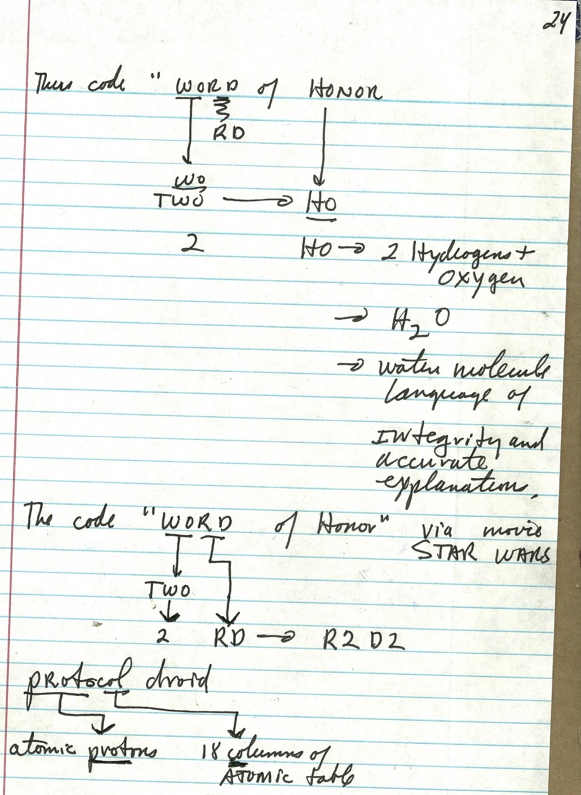 24
Thus code " WORD of HONOR
RD
WO
TWO → HO
2 HO → 2 Hydrogens +
Oxygen
→ H₂O
→ water molecule
language of
Integrity and
accurate
explanation.
The code "WORD of Honor" via movie
STAR WARS
TWO
2 RD → R2D2
protocol droid
atomic protons 18 columns of
Atomic table